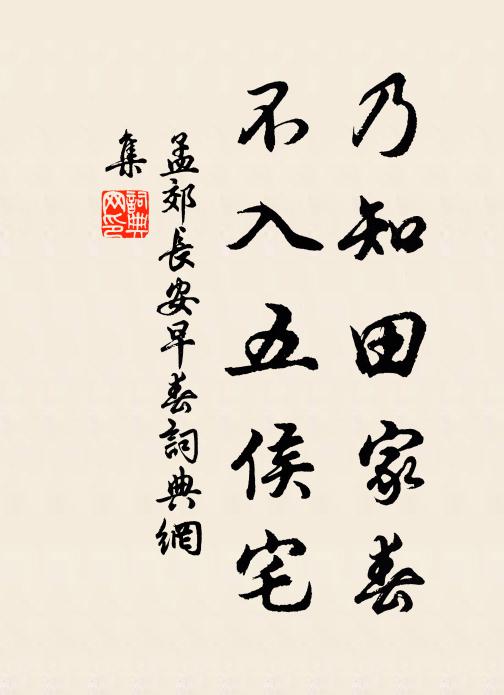 乃知田家春
不入五侯宅
孟郊長安早春詞典網
集
詞典
网印